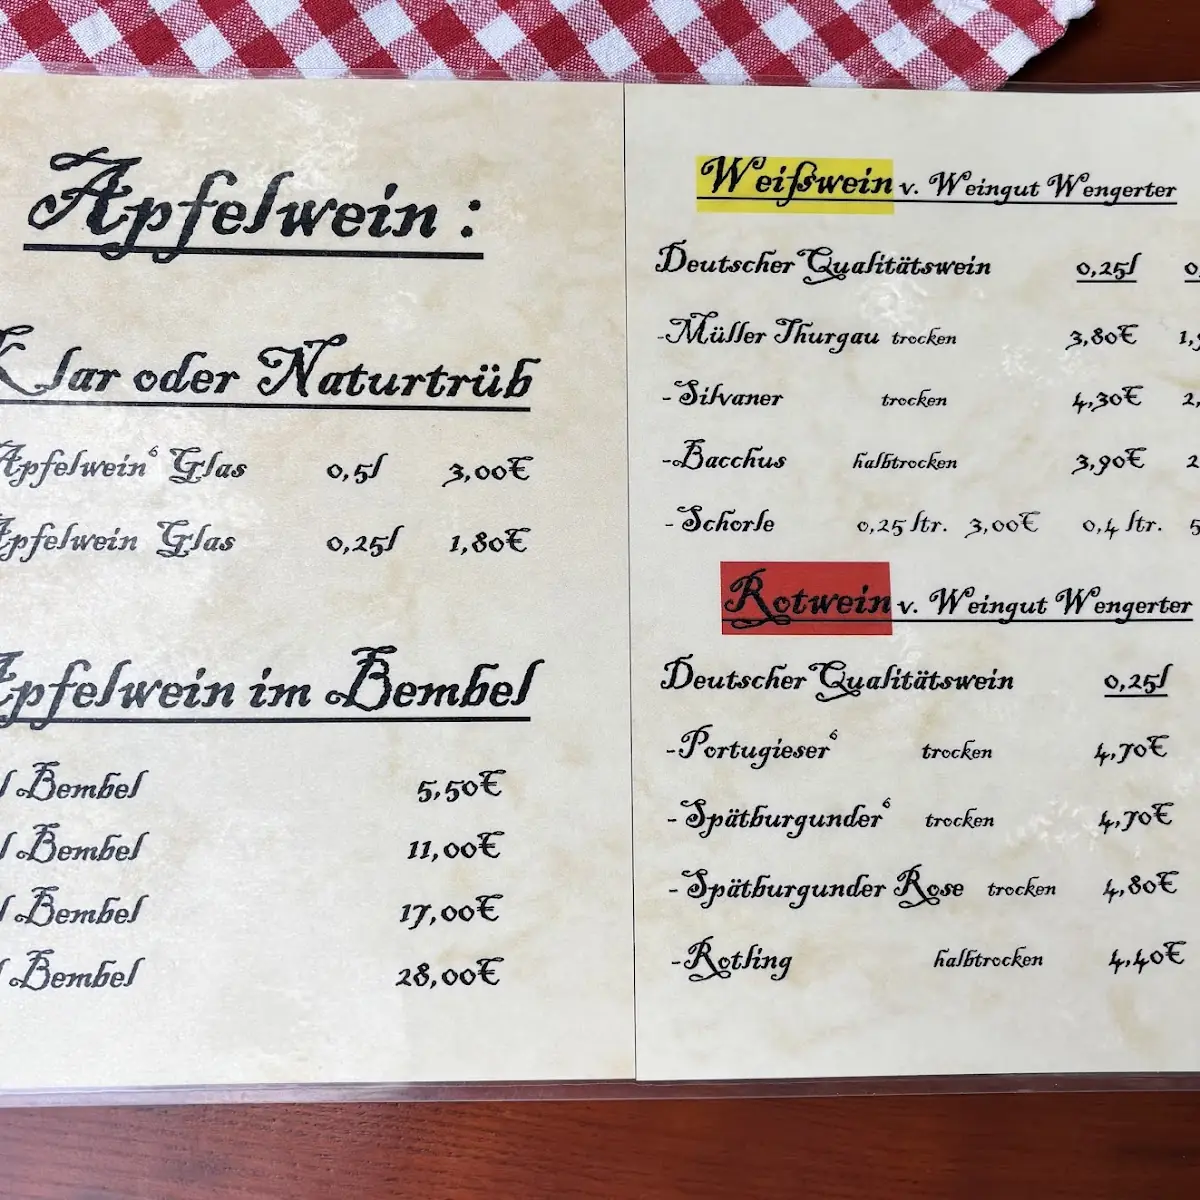 Apfelwein :
Klar oder Naturtrüb
Apfelwein⁶ Glas 0,5l 3,00€
Apfelwein Glas 0,25l 1,80€
Apfelwein im Bembel
l Bembel 5,50€
l Bembel 11,00€
l Bembel 17,00€
l Bembel 28,00€
Weißwein v. Weingut Wengerter
Deutscher Qualitätswein 0,25l
-Müller Thurgau trocken 3,80€
- Silvaner trocken 4,30€
-Bacchus halbtrocken 3,90€
- Schorle 0,25 ltr. 3,00€ 0,4 ltr.
Rotwein v. Weingut Wengerter
Deutscher Qualitätswein 0,25l
-Portugieser⁶ trocken 4,70€
- Spätburgunder⁶ trocken 4,70€
- Spätburgunder Rose trocken 4,80€
-Rotling halbtrocken 4,40€